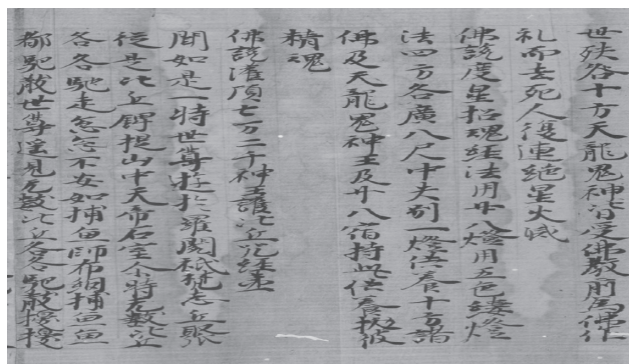 世殃各十方天龍鬼神皆受佛教前為佛作
礼而去死人護連絕星火滅
佛說度星招魂經法用廿八燈用五色縷燈
法四方各廣八尺中央別一燈供養十方諸
佛及天龍鬼神王及廿八宿持此供養擬彼
精魂
佛說灌頂七万二千神王護比丘咒經第
聞如是一時世尊遊於羅閱祇梵志丘聚
從是比丘鍀提山中天帝石室尒時老數比丘
各各馳走怱怱不安如捕魚師布網捕魚魚
都馳散世尊遥見無數比丘各各馳散擾擾